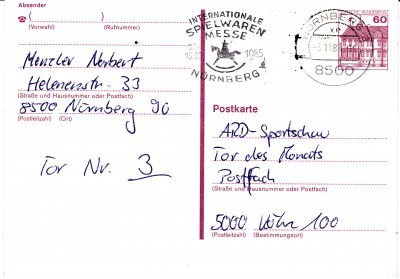 Absender
(Vorwahl) (Rufnummer)
Menzler Norbert
Helenenstr. 33
(Straße und Hausnummer oder Postfach)
8500 Nürnberg 90
(Postleitzahl) (Ort)
Tor Nr. 3
INTERNATIONALE
SPIELWAREN
MESSE
1985
NÜRNBERG
NÜRNBERG
8500
DEUTSCHE BUNDESPOST
60
Postkarte
ARD-Sportschau
Tor des Monats
Postfach
(Straße und Hausnummer oder Postfach)
5000 Köln 100
(Postleitzahl) (Bestimmungsort)